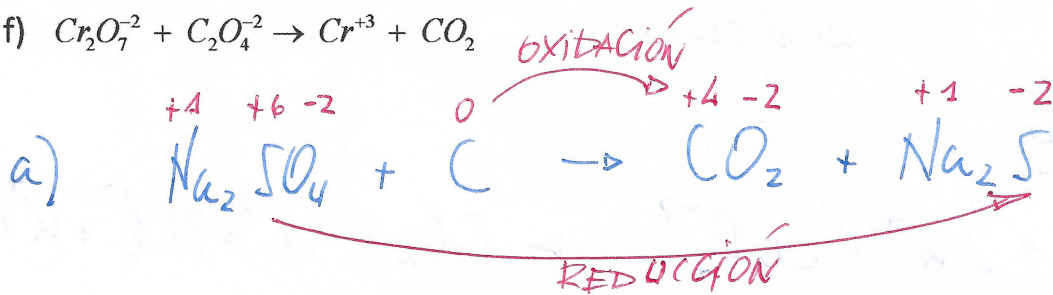 f) Cr₂O₇⁻² + C₂O₄⁻² → Cr⁺³ + CO₂
OXIDACIÓN
+1 +6 -2 0 +4 -2 +1 -2
a) Na₂SO₄ + C → CO₂ + Na₂S
REDUCCIÓN